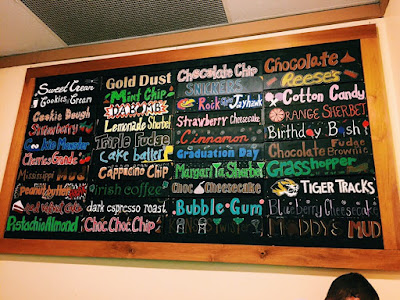 Sweet Cream
Cookies & Cream
Cookie Dough
Strawberry
Cookie Monster
Charlie's Cards
Mississippi Mud
Peanut Butter
red velvet cake
Pistachio Almond
Gold Dust
Mint Chip
DA BOMB
Lemonade Sherbet
Triple Fudge
Cake batter
Cappuccino Chip
irish coffee
dark espresso roast
Choc Choc Chip
Chocolate Chip
SNICKERS
Rock Jayhawk
Strawberry Cheesecake
Cinnamon
Graduation Day
Margarita Sherbet
Choc Cheesecake
Bubble Gum
Chocolate
Reese's
Cotton Candy
ORANGE SHERBET
Birthday Bash!
Chocolate Fudge Brownie
Grasshopper
TIGER TRACKS
Blueberry Cheesecake
MUD